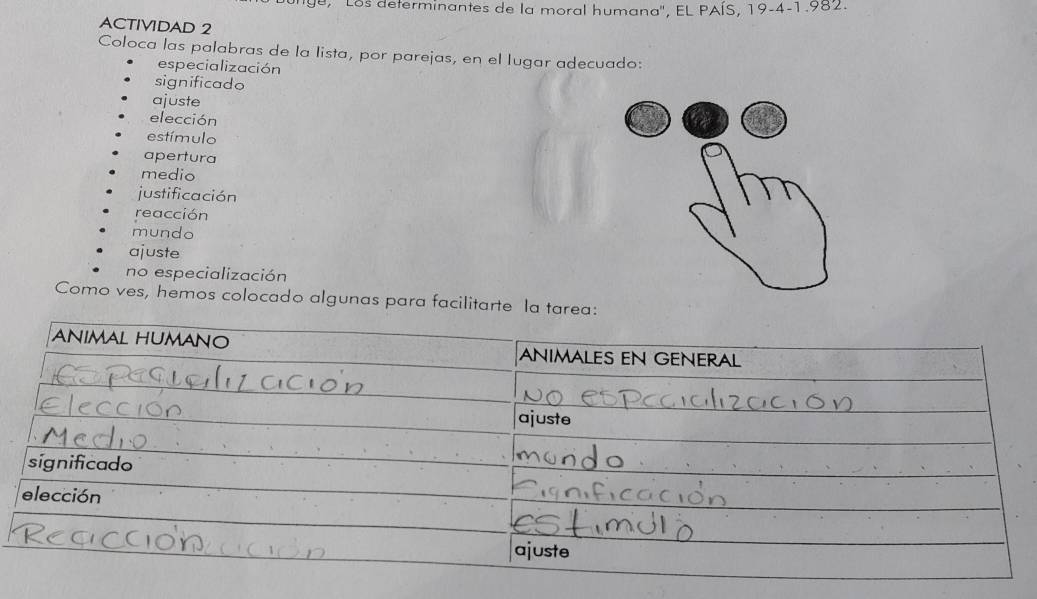 "Los determinantes de la moral humana", EL PAÍS, 19-4-1.982.
ACTIVIDAD 2
Coloca las palabras de la lista, por parejas, en el lugar adecuado:
• especialización
• significado
• ajuste
• elección
• estímulo
• apertura
• medio
• justificación
• reacción
• mundo
• ajuste
• no especialización
Como ves, hemos colocado algunas para facilitarte la tarea:
ANIMAL HUMANO ANIMALES EN GENERAL
especialización NO especialización
Elección ajuste
Medio mundo
significado significación
elección estimulo
Reacción ajuste